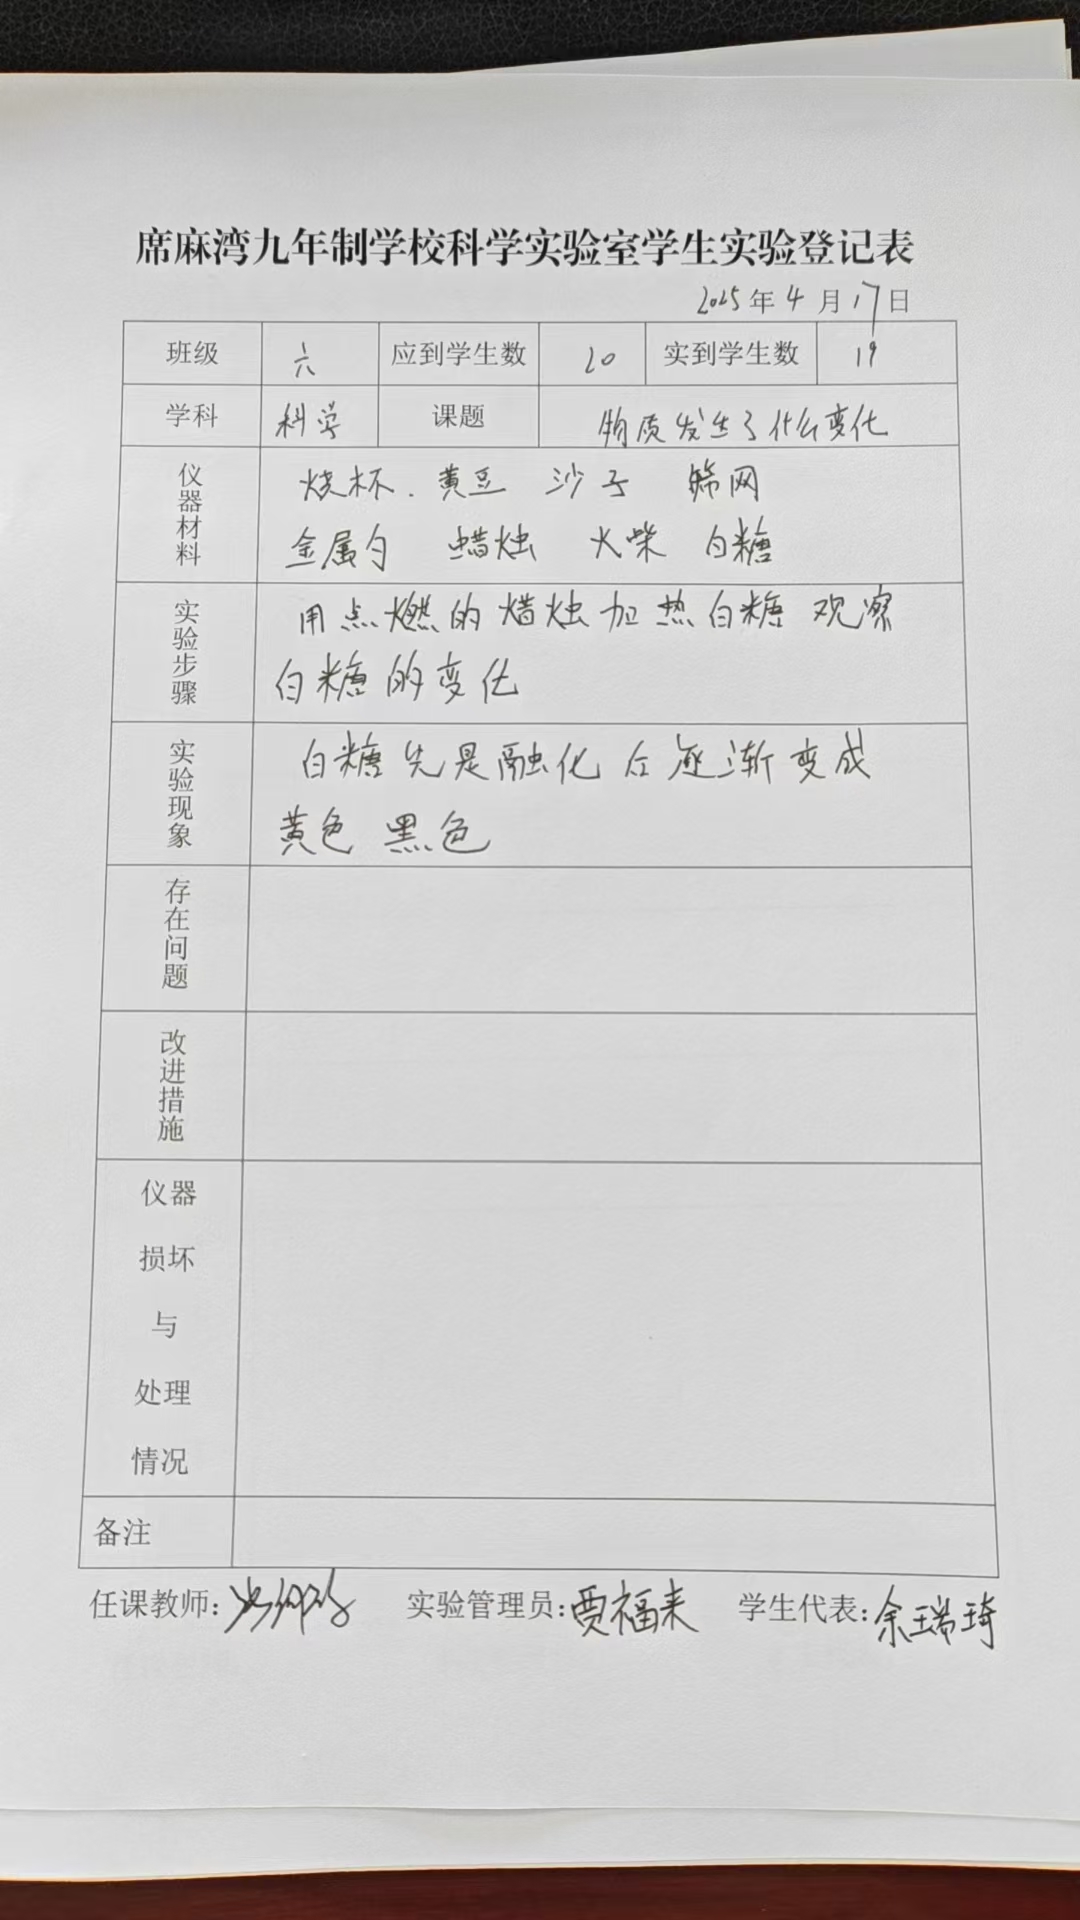 席麻湾九年制学校科学实验室学生实验登记表
2025年4月17日
班级 六 应到学生数 20 实到学生数 19
学科 科学 课题 物质发生了什么变化
仪器材料 烧杯. 黄豆 沙子 筛网
金属勺 蜡烛 火柴 白糖
实验步骤 用点燃的蜡烛加热白糖 观察
白糖的变化
实验现象 白糖先是融化 后逐渐变成
黄色 黑色
存在问题
改进措施
仪器
损坏
与
处理
情况
备注
任课教师: 实验管理员:贾福来 学生代表:余瑞琦